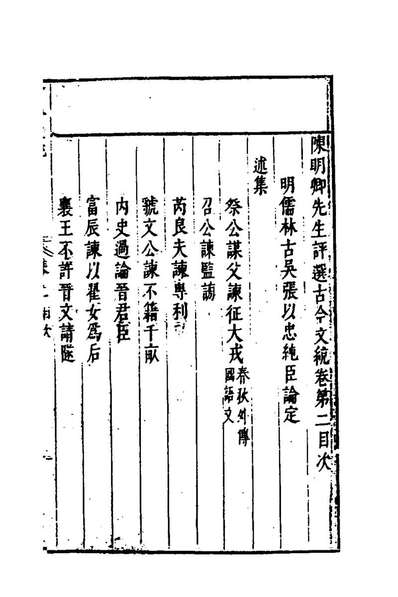 陳明卿先生評選古今文統卷第二目次
明儒林古吳張以忠純臣論定
述集
祭公謀父諫征大戎春秋外傳國語文
召公諫監謗
芮良夫諫專利
虢文公諫不籍千畝
內史過論晉君臣
富辰諫以翟女爲后
襄王不許晉文請隧